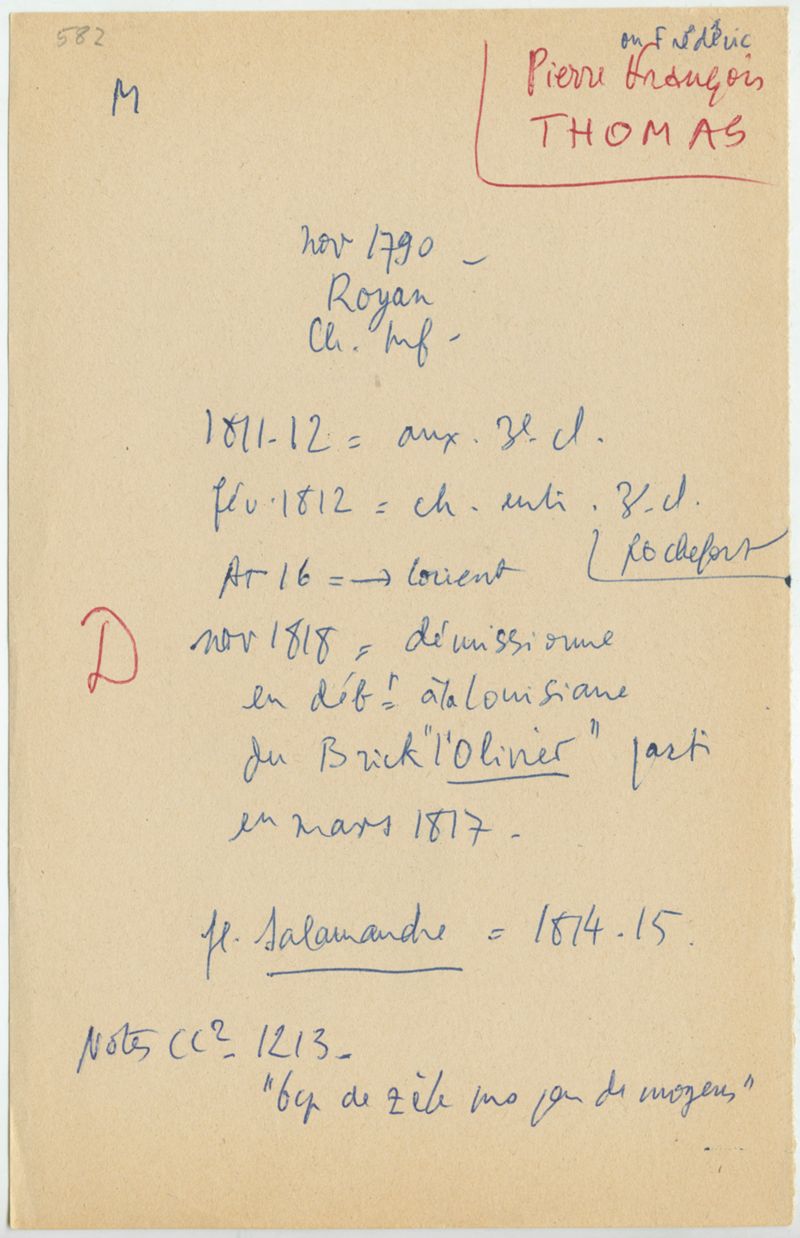 582
ou Frédéric
M
Pierre François
THOMAS
nov 1790 -
Royan
Ch.
1811-12 = aux. 3e cl.
fév. 1812 = ch. enti. 3e cl.
Rochefort
16 = → Lorient
D
nov 1818 = démissionne
en débt à la Louisiane
du Brick "l'Olivier" parti
en mars 1817 -
fl. Salamandre = 1814-15.
Notes CC2 - 1213 -
"bcp de zèle peu de moyens"